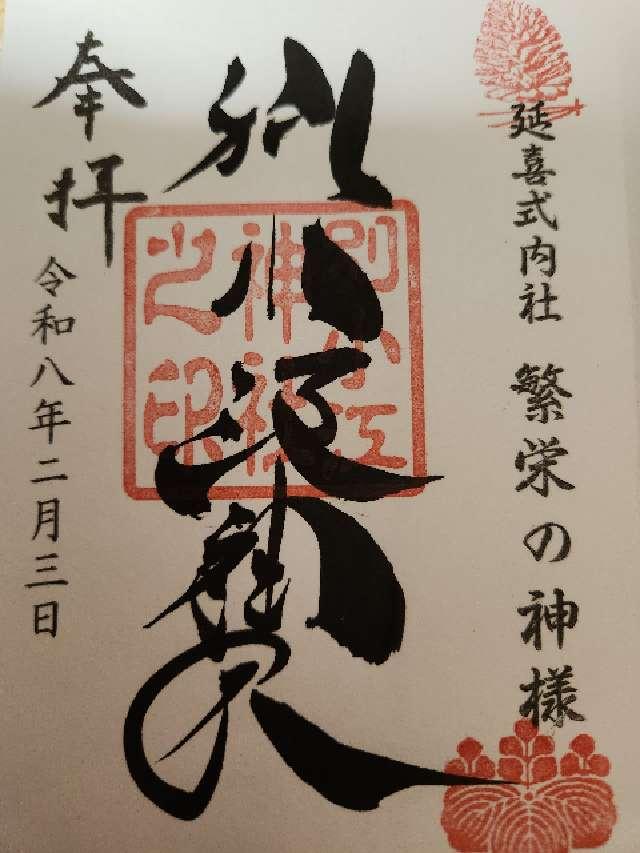 延喜式内社 繁栄の神様
別小江神社
別小江
神社
之印
奉拝
令和八年二月三日